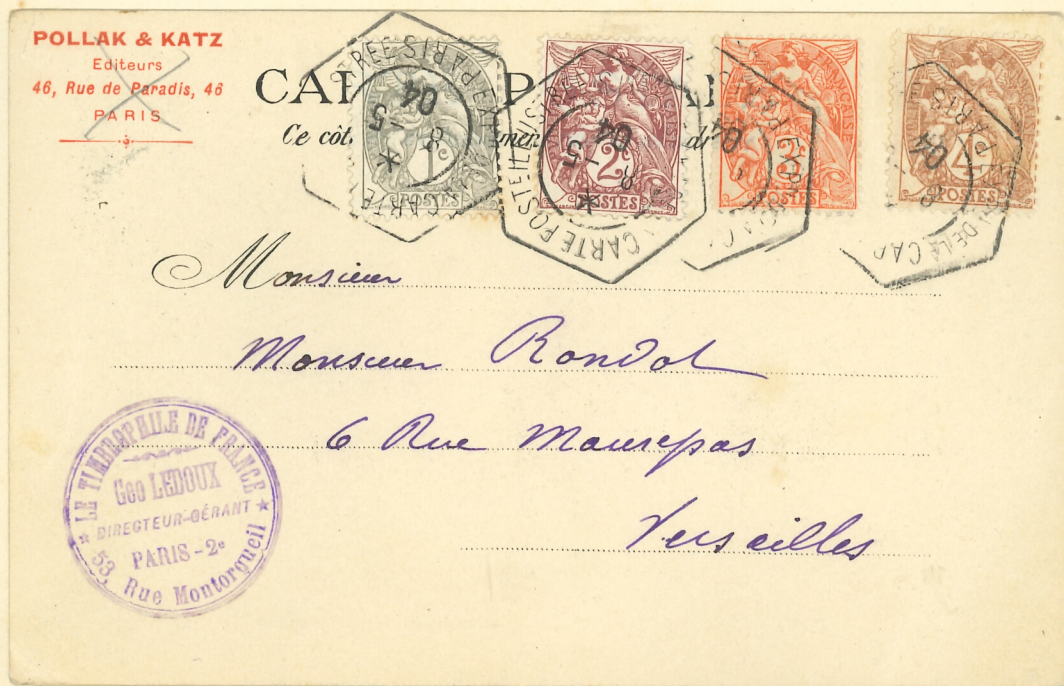 POLLAK & KATZ
Editeurs
46, Rue de Paradis, 46
PARIS
CA
Ce côt
1
POSTES
2
POSTES
FRANÇAISE
POSTES
4
POSTES
8 -5
04
8 -5
04
04
04
PARIS
CARTE POSTE ILL
DE LA CAR
Monsieur
Monsieur Rondot
6 Rue Maurepas
Versailles
LE TIMBROPHILE DE FRANCE
Geo LEDOUX
DIRECTEUR-GÉRANT
PARIS-2e
53, Rue Montorgueil